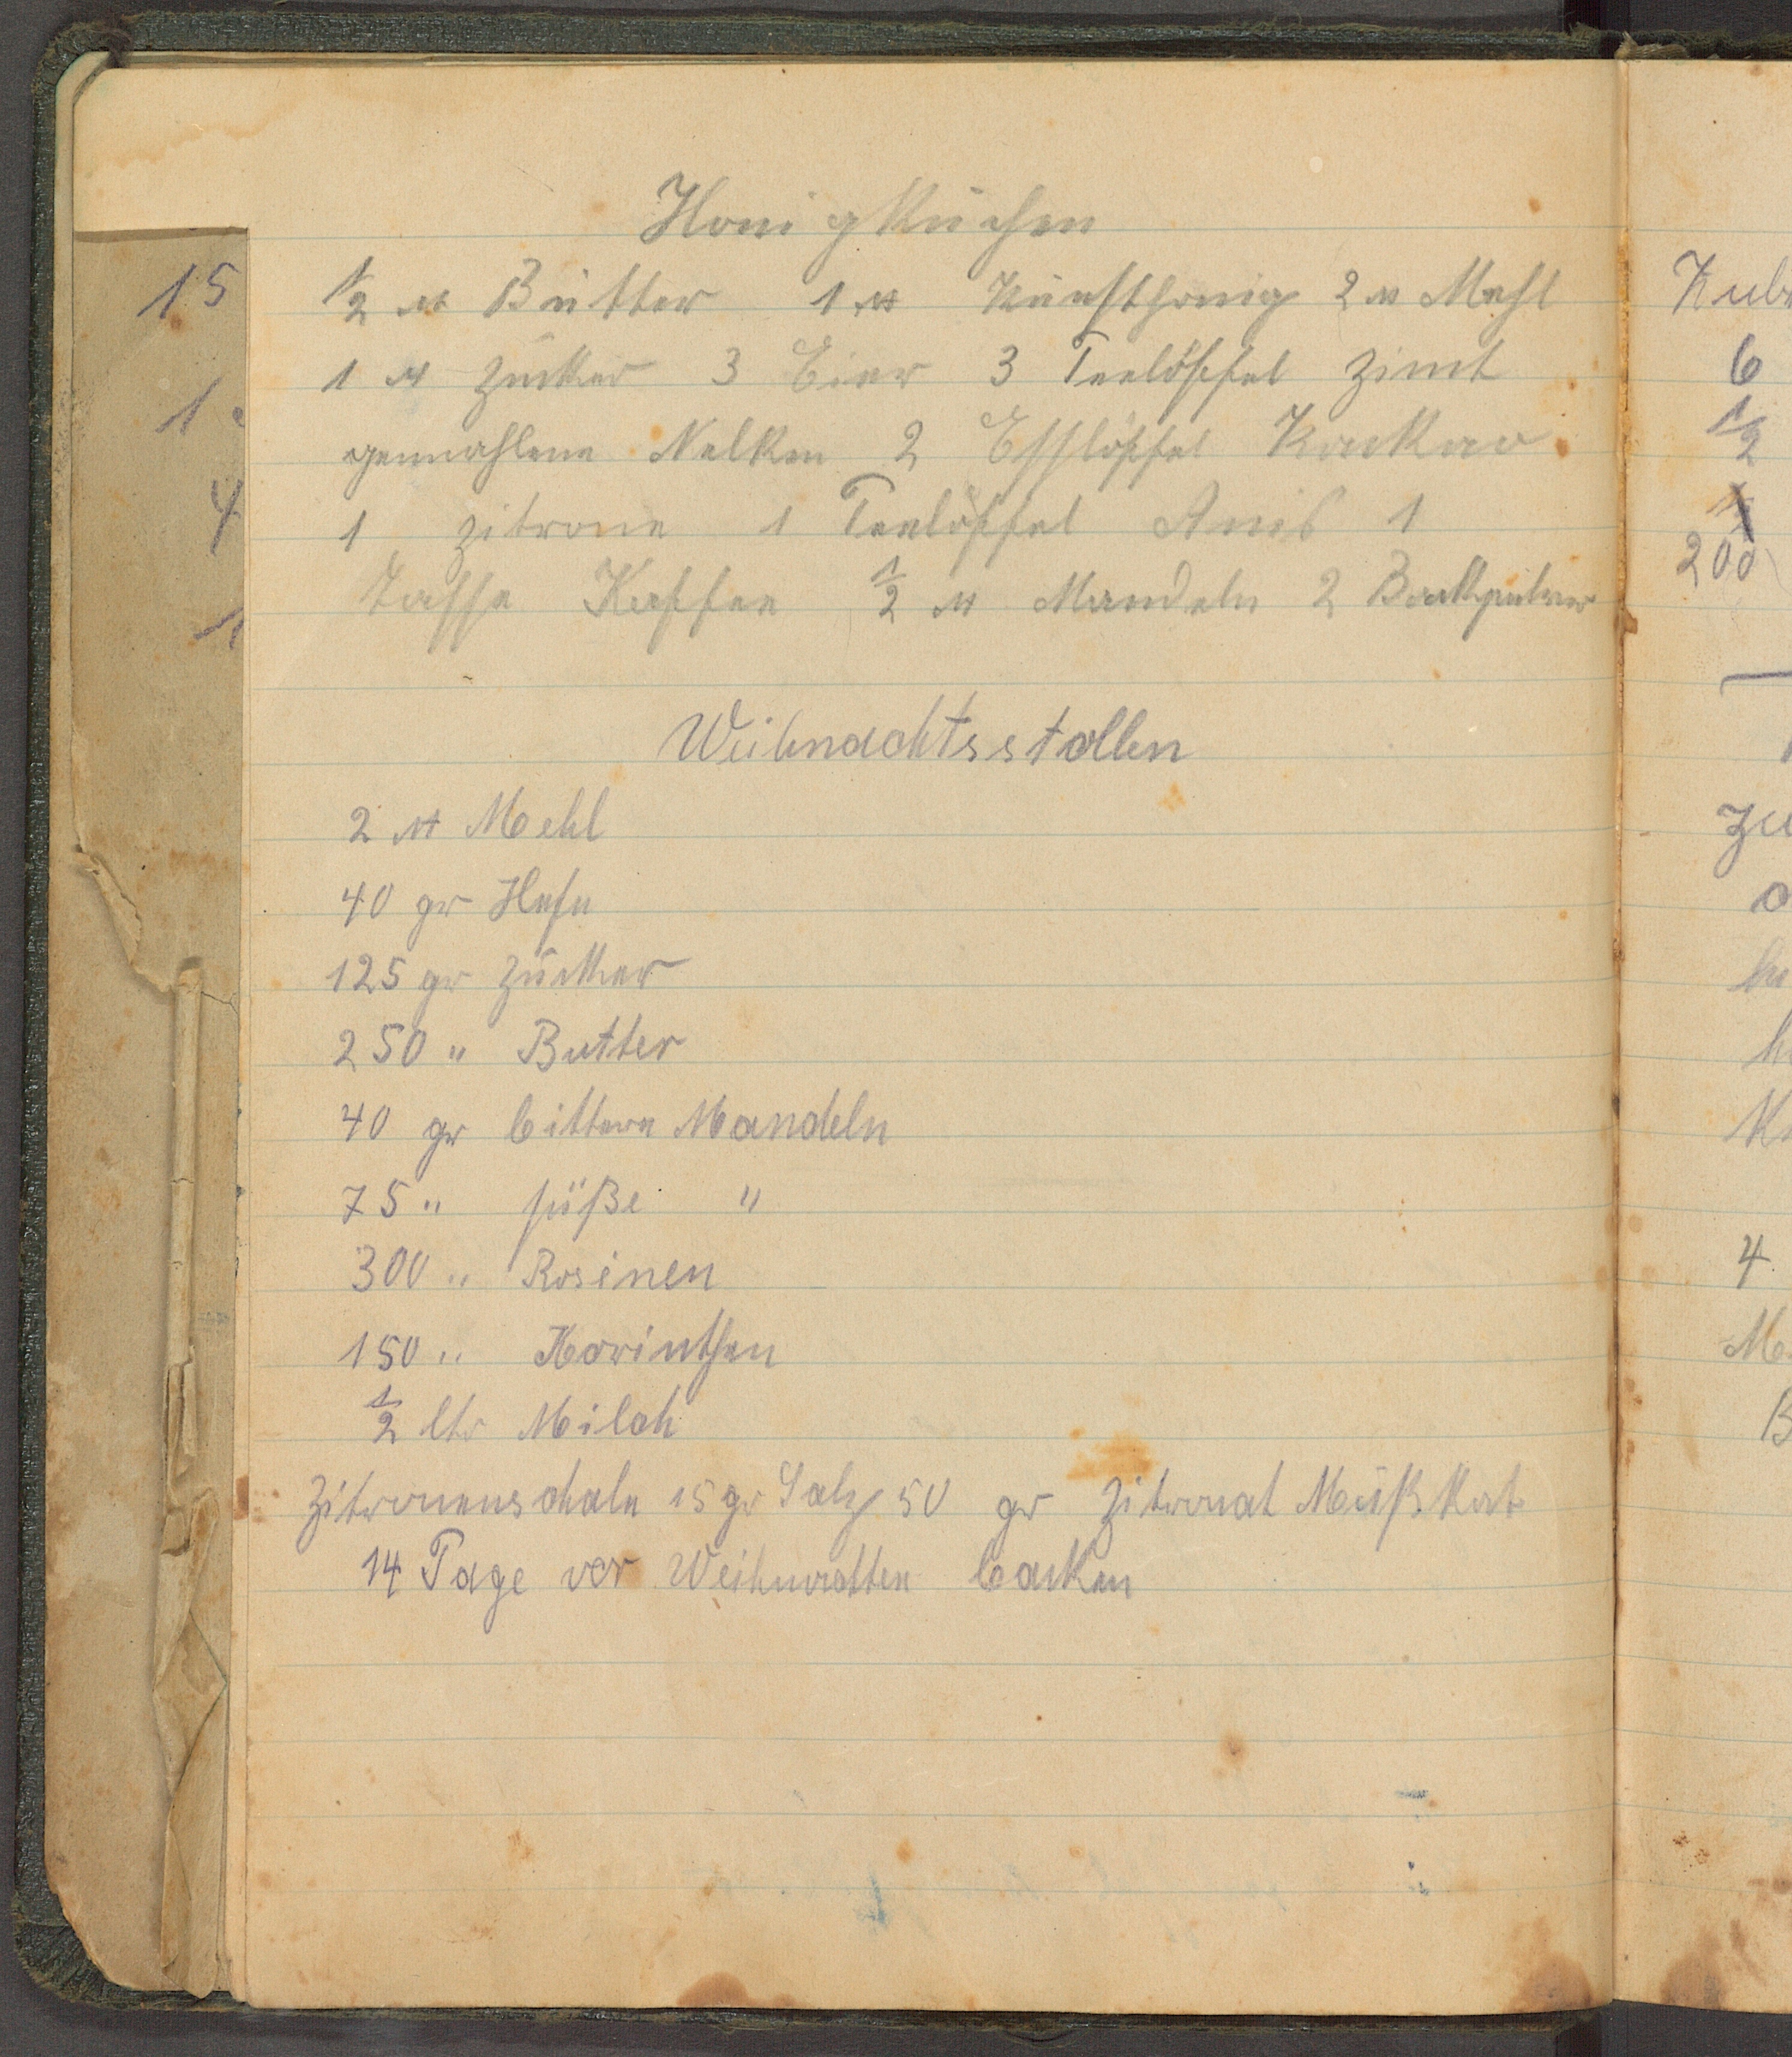 Honigkuchen
½ ℔ Butter 1 ℔ Kunsthonig 2 ℔ Mehl
1 ℔ Zucker 3 Eier 3 Teelöffel Zimt
gemahlene Nelken 2 Esslöffel Kackao
1 Zitrone 1 Teelöffel Anis 1
Tasse Kaffee ½ ℔ Mandeln 2 Backpulver
Weihnachtsstollen
2 ℔ Mehl
40 gr Hefe
125 gr Zucker
250 " Butter
40 gr bittere Mandeln
75 " süße "
300 " Rosinen
150 " Korinthen
½ ltr Milch
Zitronenschale 15 gr Salz 50 gr Zitronat Mußkat
14 Tage vor Weihnachten backen
15
1
4
1
6
½
200
4